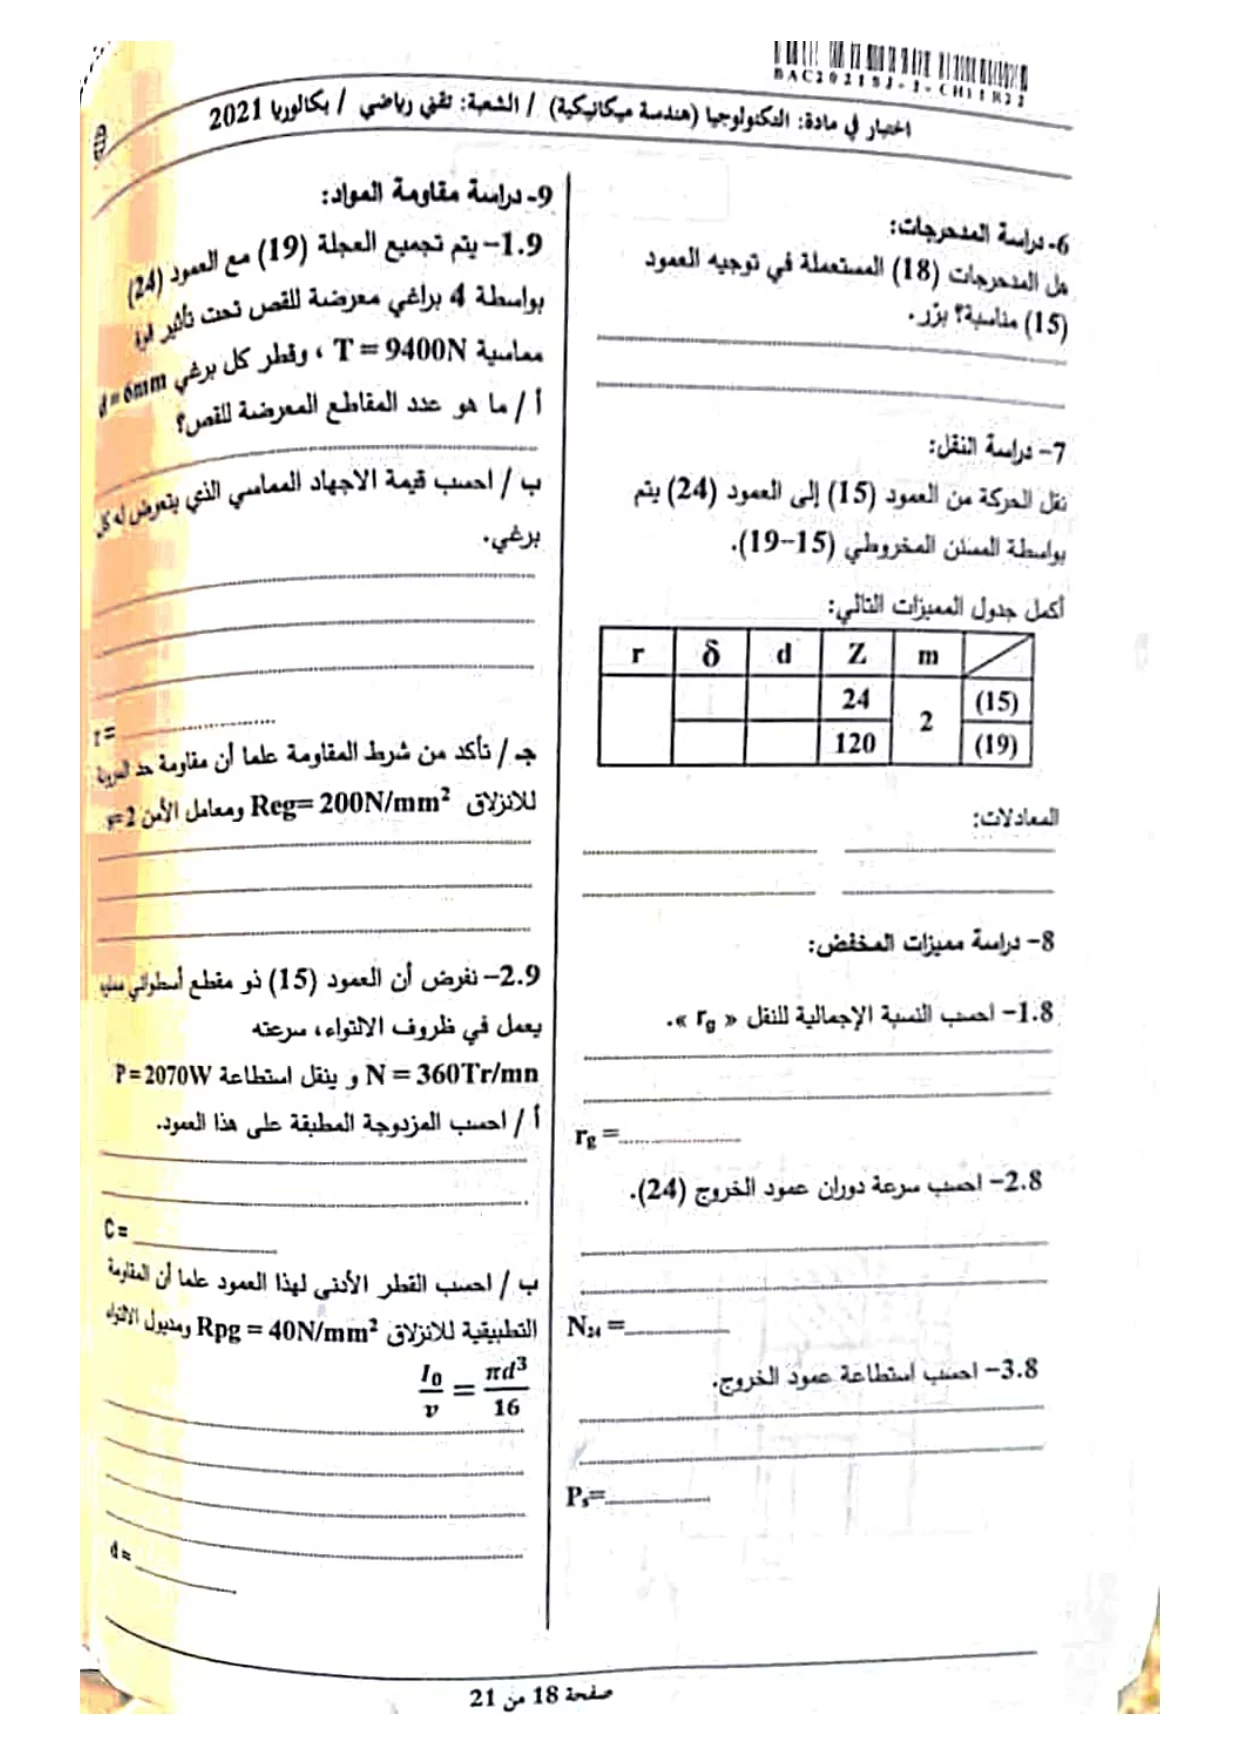 BAC2021SJ-1-CH11R22
اختبار في مادة: التكنولوجيا (هندسة ميكانيكية) / الشعبة: تقني رياضي / بكالوريا 2021
6- دراسة المدحرجات:
هل المدحرجات (18) المستعملة في توجيه العمود
(15) مناسبة؟ برّر.
7- دراسة النقل:
نقل الحركة من العمود (15) إلى العمود (24) يتم
بواسطة المسنن المخروطي (15-19).
أكمل جدول المميزات التالي:
m Z d δ r
(15) 2 24
(19) 120
المعادلات:
8- دراسة مميزات المخفض:
1.8- احسب النسبة الإجمالية للنقل « rg ».
rg =
2.8- احسب سرعة دوران عمود الخروج (24).
N24 =
3.8- احسب استطاعة عمود الخروج.
Ps=
9- دراسة مقاومة المواد:
1.9- يتم تجميع العجلة (19) مع العمود (24)
بواسطة 4 براغي معرضة للقص تحت تأثير قوة
مماسية T = 9400N ، وقطر كل برغي d = 6mm
أ / ما هو عدد المقاطع المعرضة للقص؟
ب / احسب قيمة الاجهاد المماسي الذي يتعرض له كل
برغي.
τ =
جـ / تأكد من شرط المقاومة علما أن مقاومة حد المرونة
للانزلاق Reg= 200N/mm² ومعامل الأمن s=2
2.9- نفرض أن العمود (15) ذو مقطع أسطواني
يعمل في ظروف الالتواء، سرعته
N = 360Tr/mn و ينقل استطاعة P = 2070W
أ / احسب المزدوجة المطبقة على هذا العمود.
C =
ب / احسب القطر الأدنى لهذا العمود علما أن المقاومة
التطبيقية للانزلاق Rpg = 40N/mm² ومديول الالتواء
I₀/v = πd³/16
d =
صفحة 18 من 21